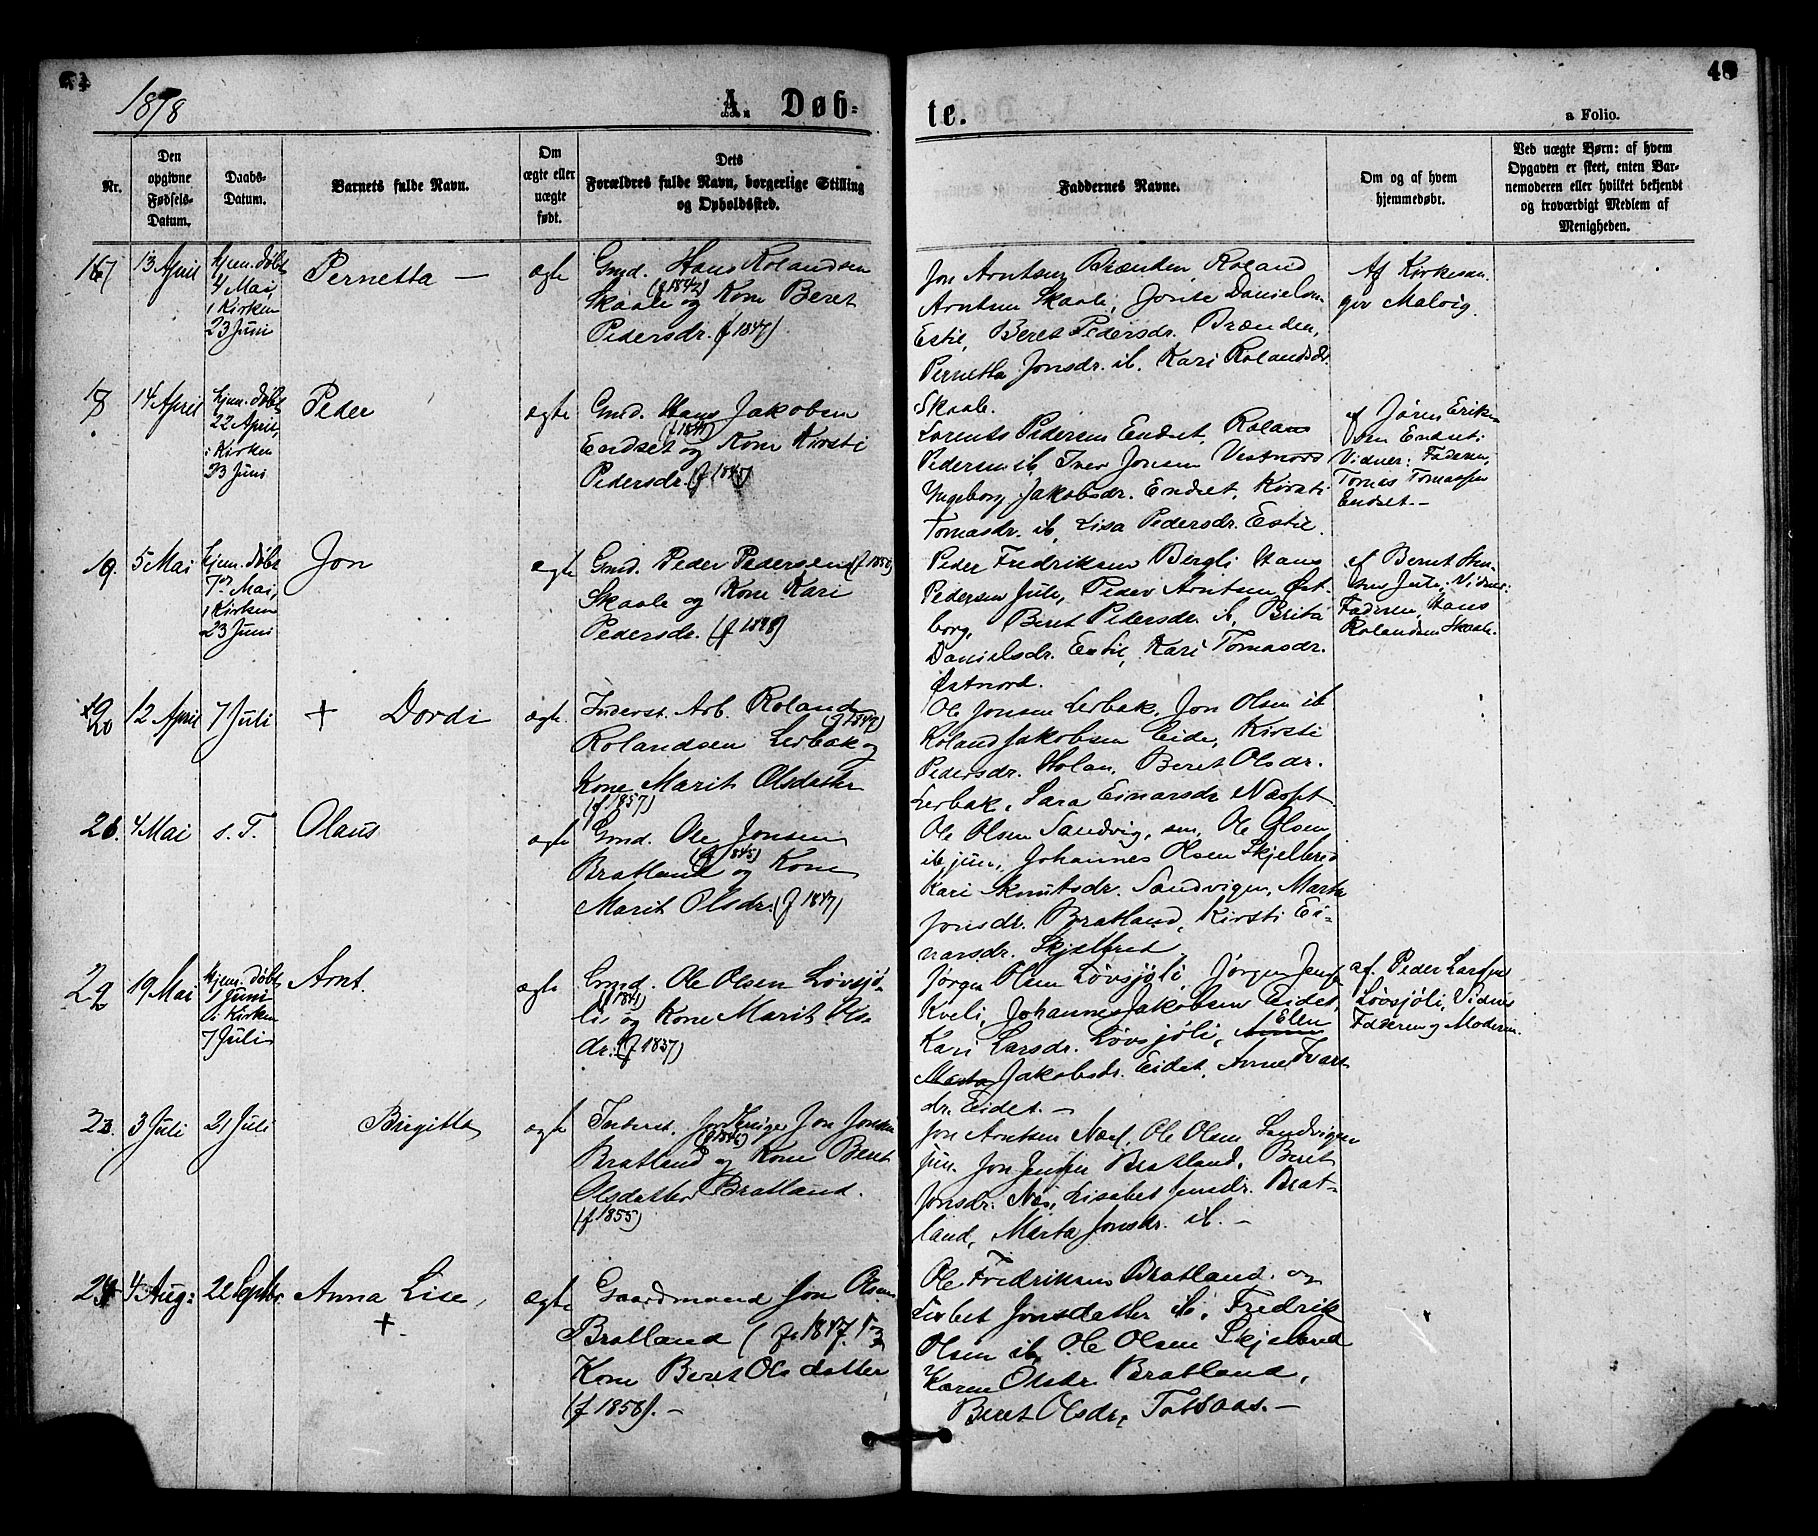 1878
A. Døb-
te.
a Folio.
48
Nr.
Den
opgivne
Fødsels-
Datum.
Daabs-
Datum.
Barnets fulde Navn.
Om
ægte eller
uægte
født.
Dets
Forældres fulde Navn, borgerlige Stilling
og Opholdssted.
Faddernes Navne.
Om og af hvem
hjemmedøbt.
Ved uægte Børn: af hvem
Opgaven er skeet, enten Bar-
nemoderen eller hvilket bekjendt
og troværdigt Medlem af
Menigheden.
13 April
hjem. døbt
4 Mai,
i Kirken
23 Juni
Pernetta —
ægte
Gmd. Hans Rolandsen
(f 1842)
Skaale og Kone Beret
Pedersdr. (f 1847)
Jon Arntsen Brænden, Roland
Arntsen Skaale, Danielsen
Estil, Beret Pedersdr. Brænden,
Pernetta Jonsdr. ib. Kari Rolandsdr.
Skaale.
Af Kirkesan-
ger Malvig.
18
14 April
hjem. døbt
22 April,
i Kirken
23 Juni
Peder
ægte
Gmd. Hans Jakobsen
Endset og Kone Kirsti
Pedersdr.
Lorents Pedersen Endset, Rolan
Pedersen ib, Iver Jonsen Vestnord
Ingeborg Jakobsdr. Endset, Kirsti
Tomasdr. ib, Lisa Pedersdr. Estil.
af Jøren Erik-
sen Endset;
Vidner: Faderen,
Tomas Tomassen
Endset.—
19.
5 Mai
hjem. døbt
7de Mai,
i Kirken
23 Juni
Jon
ægte
Gmd. Peder Pedersen
Skaale og Kone Kari
Pedersdr. (f 1848)
Peder Fredriksen Bergli, Hans
Pedersen Jule, Peder Arntsen Øst-
borg, Beret Pedersdr. ib, Brita
Danielsdr. Estil, Kari Tomasdr.
Østnord.
af Bernt Han-
sen Jule; Vidner:
Faderen, Hans
Rolandsen Skaale.
20
12 April
7 Juli
+ Dordi
ægte.
Inderst. Arb. Roland
Rolandsen Lerbak og
Kone Marit Olsdatter
(f 1857)
Ole Jonsen Lerbak, Jon Olsen ib
Roland Jakobsen Eide, Kirsti
Pedersdr. Holan, Beret Olsdr.
Lerbak, Sara Einarsdr
4 Mai
s. T.
Olaus
ægte
Gmd. Ole Jonsen
(f 1845)
Bratland og Kone
Marit Olsdr. (f 1847)
Ole Olsen Sandvig, sen, Ole Olsen
ib jun, Johannes Olsen Skjelbred
Kari Knutsdr. Sandvigen, Marta
Jonsdr. Bratland, Kirsti Ei-
narsdr. Skjelbret
22
19 Mai
hjem. døbt
1 Juni
i Kirken
7 Juli
Arnt.
ægte
Gmd. Ole Olsen Løvsjø-
(f 1841)
li og Kone Marit Ols-
dr. (f 1837)
Jørgen Olsen Løvsjøli, Jørgen
Kveli, Johannes Jakobsen Eidet,
Kari Larsdr. Løvsjøli, Elen
Marta Jakobsdr. Eidet, Anne Ivars
dr. Eidet. —
af. Peder Larsen
Løvsjøli, Vidner
Faderen og Moderen.
23.
3 Juli
21 Juli
Birgitta
ægte
Inderst. Jon Jonsen
(f 1846)
Bratland og Kone Beret
Olsdatter Bratland.
(f 1855)
Jon Arntsen, Ole Olsen Sandvigen
jun. Jon Bratland, Beret
Jonsdr. Næs, Lisabet Jonsdr. Brat-
land, Marta Jonsdr. ib. —
24
4 Aug:
Septbr.
Anna Lise,
+.
ægte
Gaardmand Jon Olsen
Bratland
Kone Beret Olsdatter
(f 1858). —
Ole Fredriksen Bratland og
Lisbet Jonsdatter ib, Fredrik
Olsen ib, Ole Olsen Skjelbred
Karen Olsdr. Bratland,
Beret Olsdr, Totsaas. —